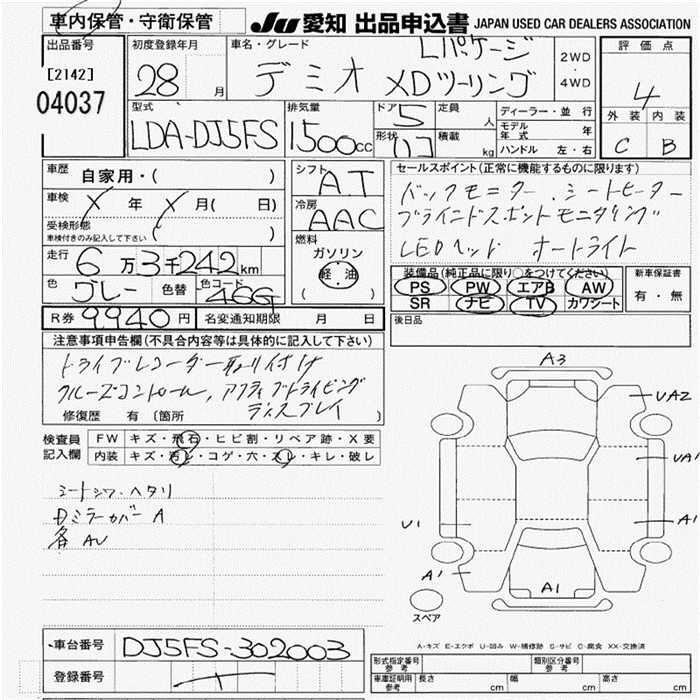 車内保管・守衛保管
JU 愛知 出品申込書 JAPAN USED CAR DEALERS ASSOCIATION
出品番号
[2142]
04037
初度登録年月
28 月
車名・グレード
Lパケージ
デミオ XDツーリング
2WD
4WD
評価点
4
外装 内装
C B
型式
LDA-DJ5FS
排気量
1500cc
ドア 5
形状
定員 人
積載 kg
ディーラー・並行
モデル年式 年
ハンドル 左・右
車歴
自家用・( )
車検 X 年 X 月( 日)
受検形態
車検付きのみ記入して下さい ( )
走行
6万3千242km
色 グレー 色替 色コード 46G
シフト
A.T
冷房
AAC
燃料
ガソリン
軽・油
( )
セールスポイント(正常に機能するものに限ります)
バックモニター . シートヒーター
ブラインドスポットモニタリング
LEDヘッド オートライト
装備品(純正品に限り○をつけてください)
PS PW エアB AW
SR ナビ TV カワシート
新車保証書
有・無
R券 9,940円
名変通知期限 月 日
後日品
注意事項申告欄(不具合内容等は具体的に記入して下さい)
ドライブレコーダー取り付け
クルーズコントロール, アクティブドライビング
ディスプレイ
修復歴 有 〔箇所
検査員
記入欄
FW キズ・飛石・ヒビ割・リペア跡・X要
内装 キズ・汚レ・コゲ・穴・スレ・キレ・破レ
シートシワ・ヘタリ
Dミラーカバー A
各AU
A3
UA2
UA1
A1
U1
A1
A1
スペア
A・キズ E・エクボ U・凹み W・補修跡 S・サビ C・腐食 XX・交換済
車台番号 DJ5FS-302003
登録番号
形式指定番号
参考
類別区分番号
参考
車庫証明用
参考
長さ cm 幅 cm 高さ cm